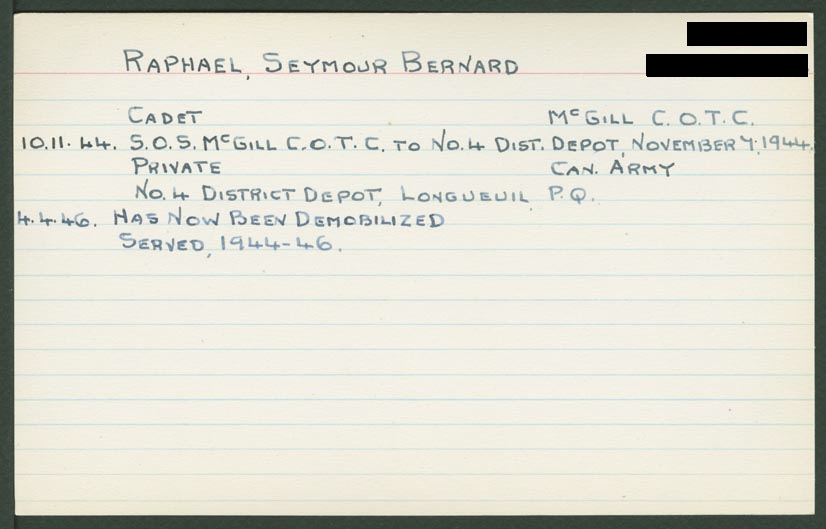 RAPHAEL, SEYMOUR BERNARD
CADET McGILL C.O.T.C.
10.11.44. S.O.S. McGILL C.O.T.C. TO No.4 DIST. DEPOT, NOVEMBER 7, 1944.
PRIVATE CAN. ARMY
No.4 DISTRICT DEPOT, LONGUEUIL P.Q.
4.4.46. HAS NOW BEEN DEMOBILIZED
SERVED, 1944-46.